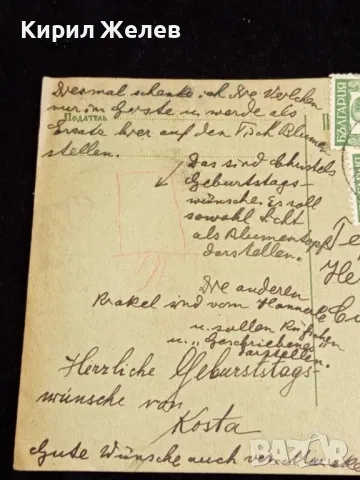 Кирил Желев
Diesmal schenke ich die Veilchen
nur im Geiste u. werde als
Податель
Ersatz hier auf den Tisch Blumen
stellen.
БЪЛГАРИЯ
Das sind Christels
Geburtstags-
wünsche. Es soll
sowohl Licht
als Blumentopf
darstellen.
Die anderen
Krakel sind vom Hannae
u. sollen
u. "Geschriebenes"
darstellen.
Herzliche Geburststags-
wünsche von
Kosta
Gute Wünsche auch von
bazar